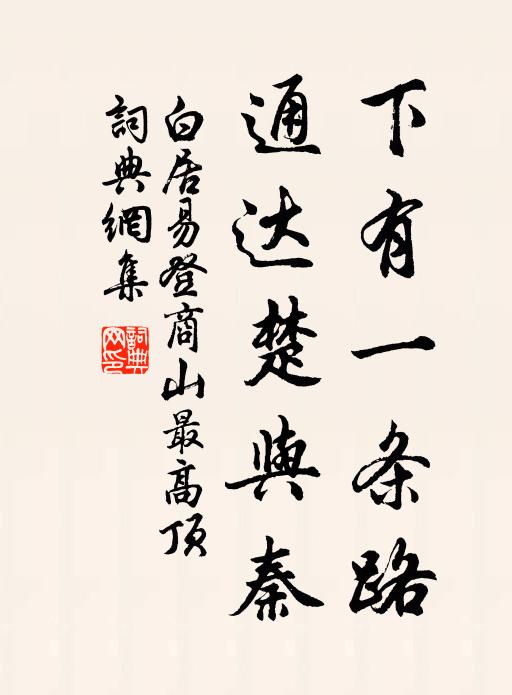 下有一条路
通达楚與秦
白居易登商山最高顶
詞典網集
詞典网印